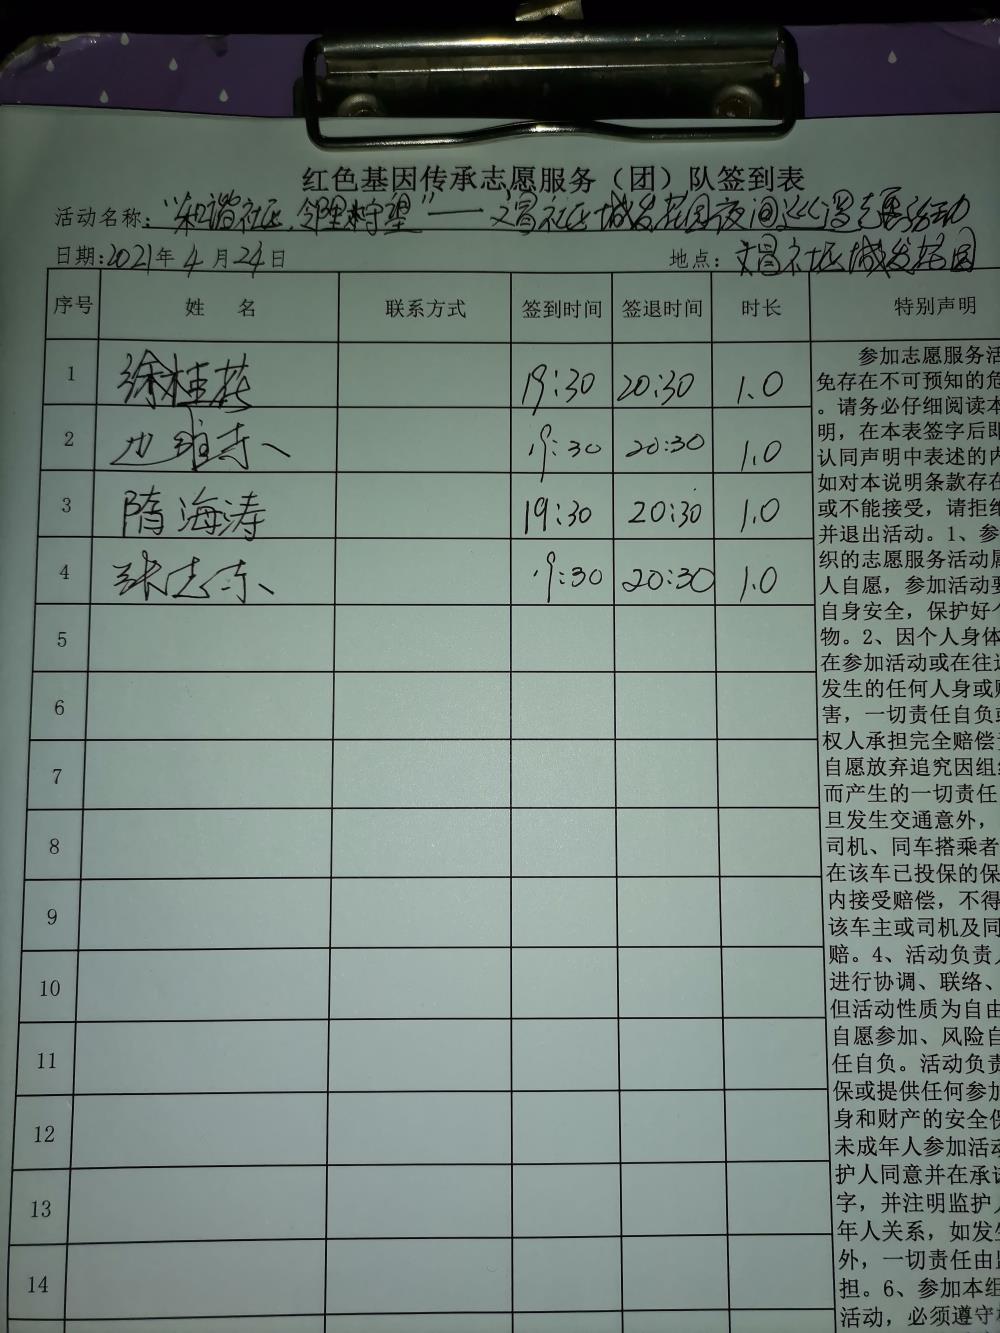 红色基因传承志愿服务（团）队签到表
活动名称："和谐社区，邻里守望"——文昌社区城发花园夜间巡逻志愿活动
日期:2021年4月24日 地点：文昌社区城发花园
序号 姓 名 联系方式 签到时间 签退时间 时长 特别声明
1 徐桂花 19:30 20:30 1.0
2 19:30 20:30 1.0
3 隋海涛 19:30 20:30 1.0
4 张志东 19:30 20:30 1.0
5
6
7
8
9
10
11
12
13
14
参加志愿服务活
免存在不可预知的危
。请务必仔细阅读本
明，在本表签字后即
认同声明中表述的内
如对本说明条款存在
或不能接受，请拒绝
并退出活动。1、参
织的志愿服务活动属
人自愿，参加活动要
自身安全，保护好个
物。2、因个人身体
在参加活动或在往返
发生的任何人身或财
害，一切责任自负或
权人承担完全赔偿责
自愿放弃追究因组织
而产生的一切责任
旦发生交通意外，
司机、同车搭乘者
在该车已投保的保
内接受赔偿，不得
该车主或司机及同
赔。4、活动负责人
进行协调、联络、
但活动性质为自由
自愿参加、风险自
任自负。活动负责
保或提供任何参加
身和财产的安全保
未成年人参加活动
护人同意并在承诺
字，并注明监护人
年人关系，如发生
外，一切责任由监
担。6、参加本组
活动，必须遵守